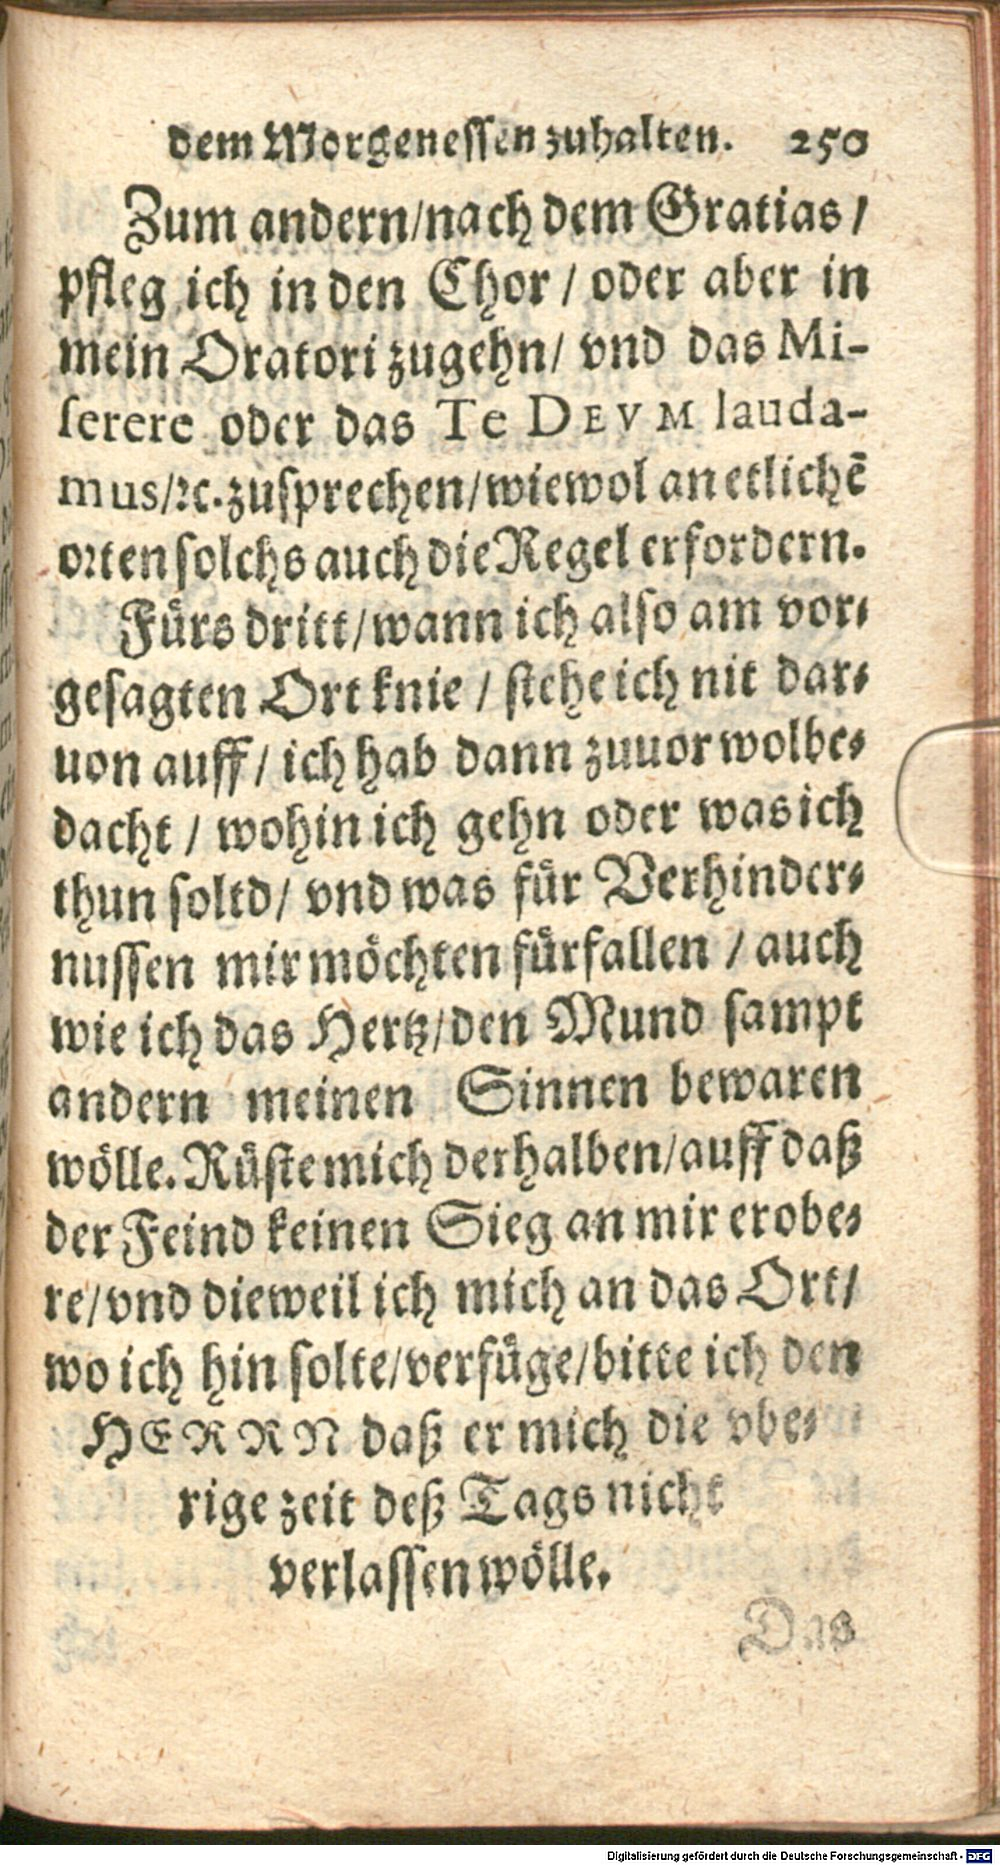 dem Morgenessen zuhalten. 250
Zum andern/nach dem Gratias/
pfleg ich in den Chor/ oder aber in
mein Oratori zugehn/ vnd das Mi-
serere oder das Te DEVM lauda-
mus/ꝛc. zusprechen/wiewol an etlichẽ
orten solchs auch die Regel erfordern.
Fürs dritt/wann ich also am vor-
gesagten Ort knie/ stehe ich nit dar-
uon auff/ ich hab dann zuuor wolbe-
dacht/ wohin ich gehn oder was ich
thun soltd/ vnd was für Verhinder-
nussen mir möchten fürfallen/ auch
wie ich das Hertz/den Mund sampt
andern meinen Sinnen bewaren
wölle. Rüste mich derhalben/auff daß
der Feind keinen Sieg an mir erobe-
re/vnd dieweil ich mich an das Ort/
wo ich hin solte/verfüge/bitte ich den
HERRN daß er mich die vbe-
rige zeit deß Tags nicht
verlassen wölle.
Das
Digitalisierung gefördert durch die Deutsche Forschungsgemeinschaft - DFG